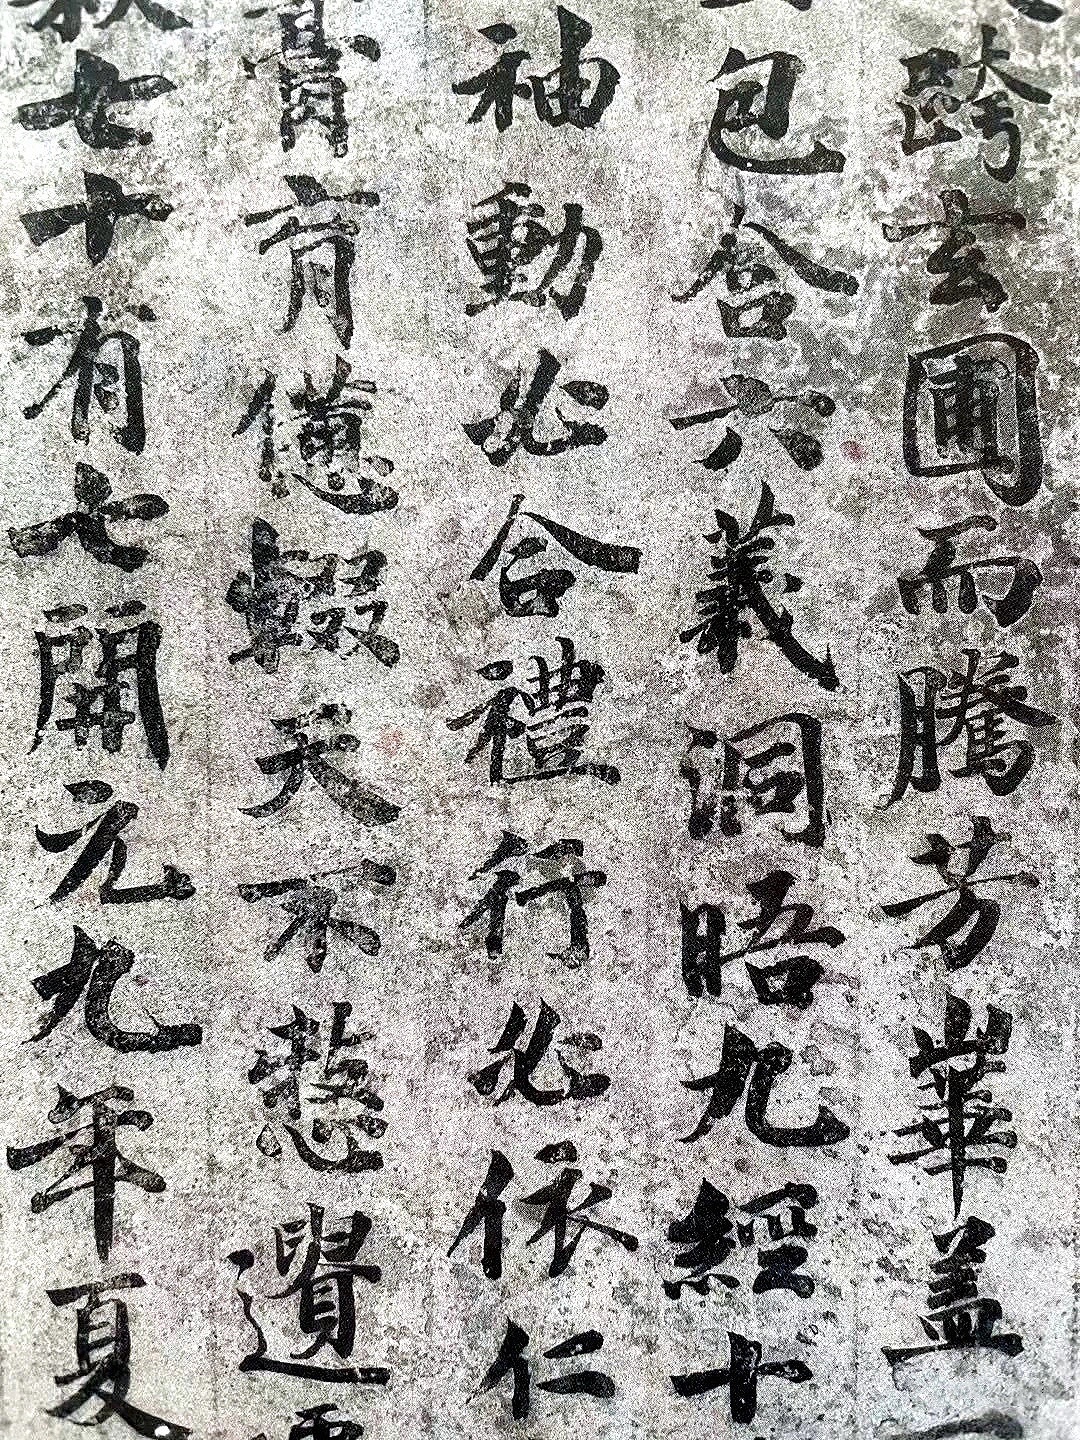 跨玄圃而騰芳華盖
包含六義洞晤九經十
袖動必合禮行必依仁
膏肓僡輟天不憖遺
秋七十有七開元九年夏